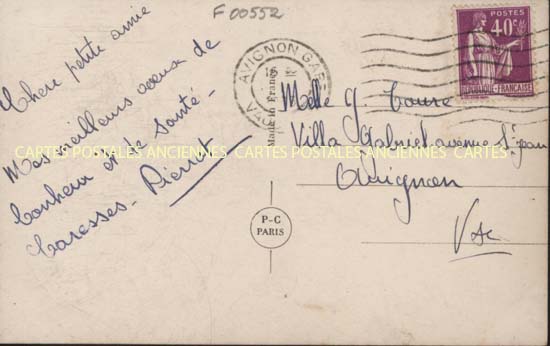 F 00552
Chere petite amie
Mes meilleurs voeux de
bonheur et de santé-
Caresses- Pierrot
AVIGNON GARE
POSTES
40c
REPUBLIQUE FRANÇAISE
Made in France
Melle
Villa Gabriel avenue St Jean
Avignon
Vse
P-C
PARIS
CARTES POSTALES ANCIENNES CARTES POSTALES ANCIENNES CARTES